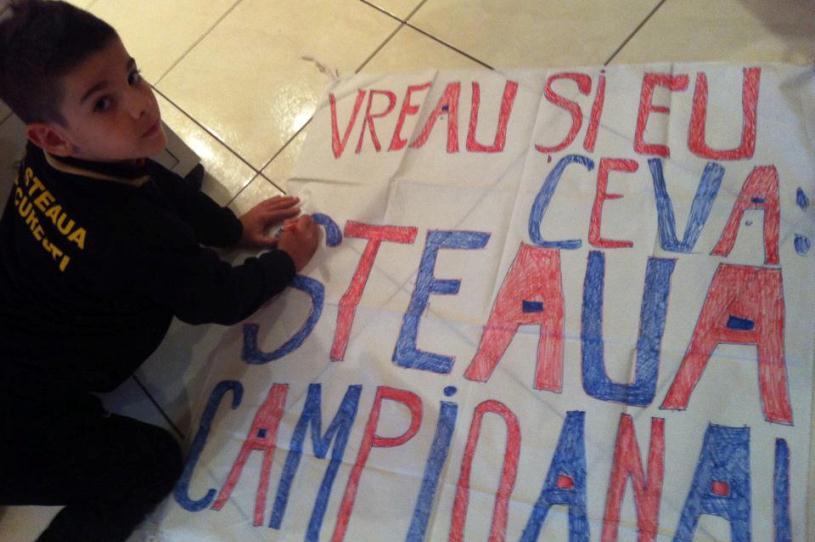 STEAUA
VREAU ȘI EU
CEVA:
STEAUA
CAMPIOANA!